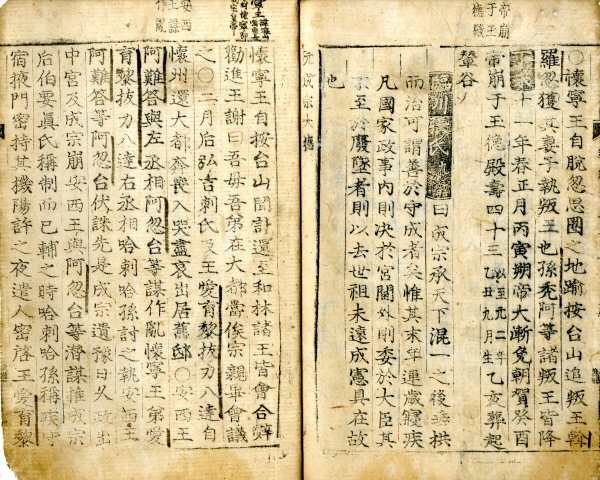 帝崩
于玉
德殿
○懷寧王自脫忽思圈之地踰按台山追叛王斡
羅忽獲其妻子執叛王也孫禿阿等諸叛王皆降
十一年春正月丙寅朔帝大漸免朝賀癸酉
帝崩于玉德殿壽四十三乙丑九月生乙亥葬起
輦谷
曰成宗承天下混一之後垂拱
而治可謂善於守成者矣惟其末年連歲寢疾
凡國家政事內則決於宮閫外則委於大臣其
不至於廢墜者則以去世祖未遠成憲具在故
也
元成宗大德
安西
王謀
作亂
懷寧王自按台山聞訃還至和林諸王皆會合辭
勸進王謝曰吾母吾弟在大都當俟宗親畢會議
之○二月后弘吉剌氏及王愛育黎拔力八達自
懷州還大都奔喪入哭盡哀出居舊邸○安西王
阿難答與左丞相阿忽台等謀作亂懷寧王弟愛
育黎拔力八達右丞相哈剌哈孫討之執安西王
阿難答等阿忽台伏誅先是成宗遺豫日久政出
中宮及成宗崩安西王與阿忽台等潛謀推成宗
后伯要眞氏稱制而已輔之時哈剌哈孫稱疾守
宿掖門密持其機陽許之夜遣人密啓王愛育黎